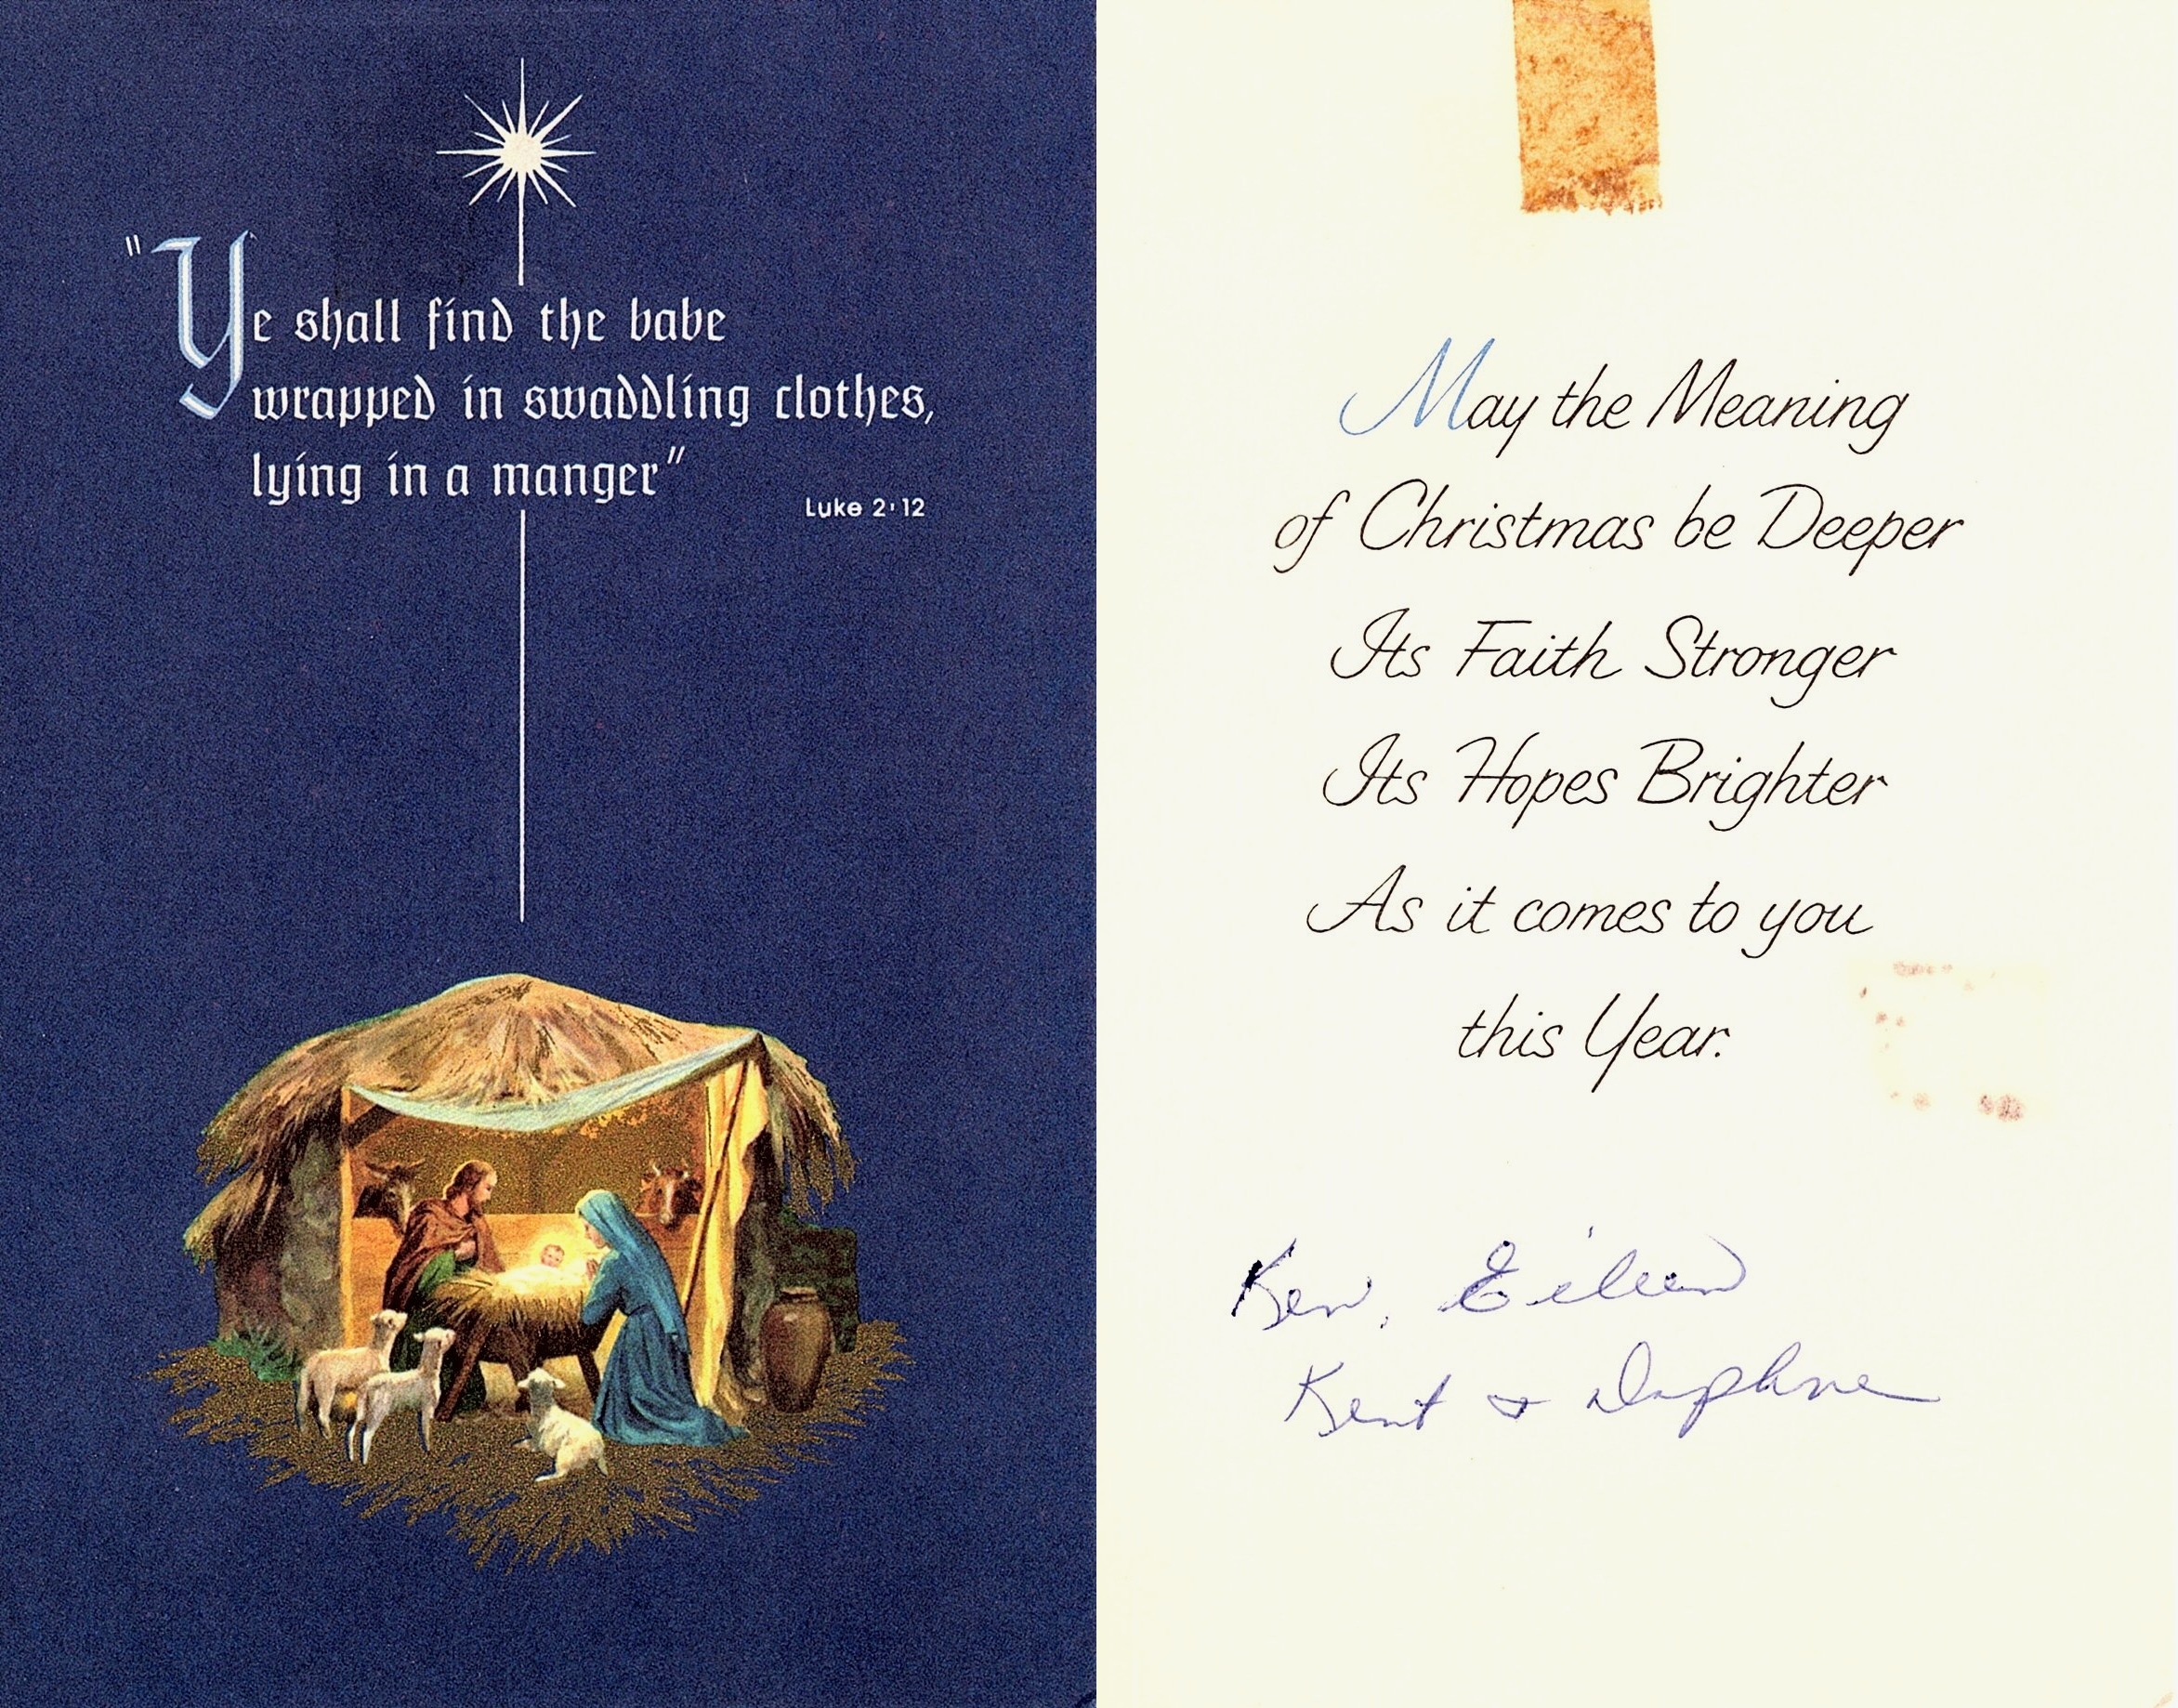 "Ye shall find the babe
wrapped in swaddling clothes,
lying in a manger"
Luke 2:12
May the Meaning
of Christmas be Deeper
Its Faith Stronger
Its Hopes Brighter
As it comes to you
this Year.
Ken, Eileen
Kent & Daphne